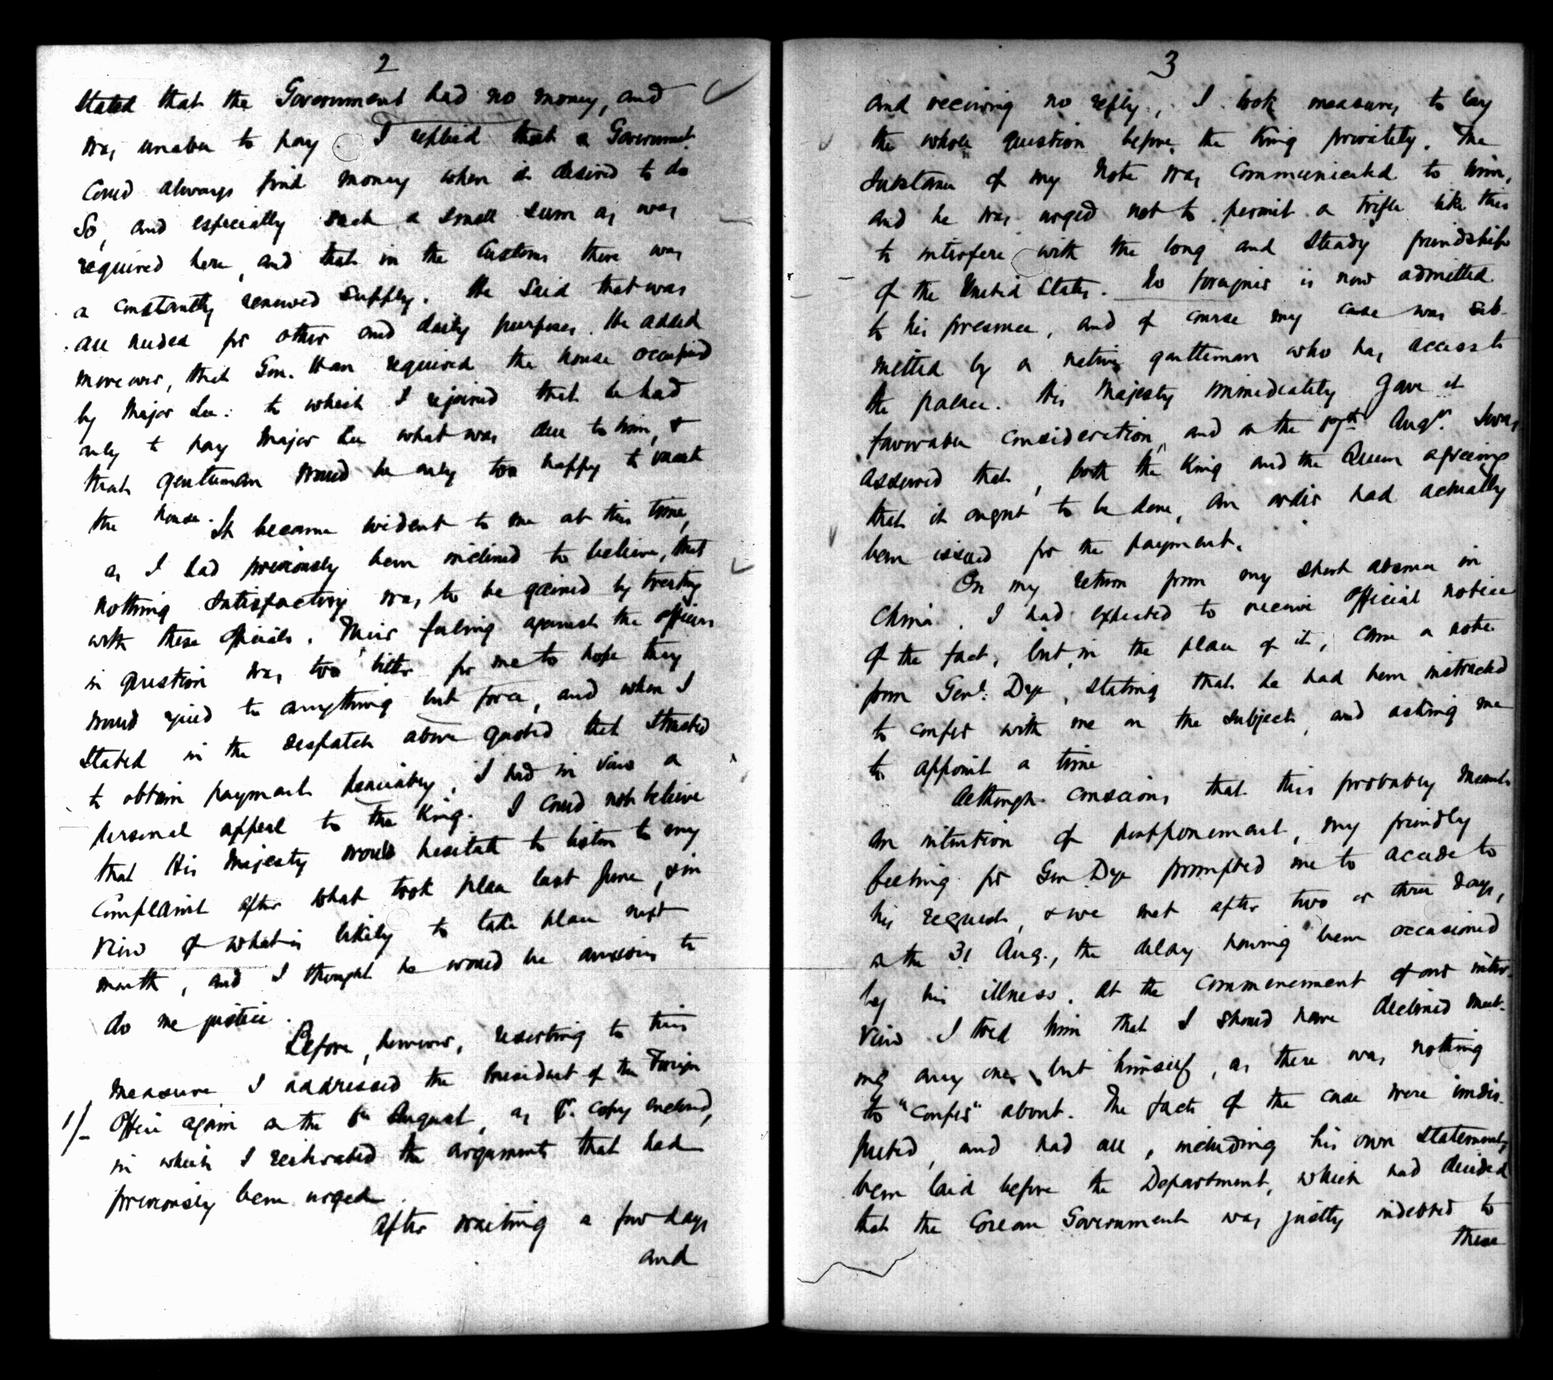 2
stated that the Government had no money, and
was unable to pay. I replied that a Government
could always find money when it desired to do
so, and especially such a small sum as was
required here, and that in the Customs there was
a constantly renewed supply. He said that was
all needed for other and daily purposes. He added
moreover, that Gen. Han required the house occupied
by Major Lee: to which I rejoined that he had
only to pay Major Lee what was due to him, &
that gentleman would be only too happy to vacate
the house.
It became evident to me at this time,
as I had previously been inclined to believe, that
nothing satisfactory was to be gained by treating
with these officials. Their feeling against the officers
in question was too bitter for me to hope they
would yield to anything but force, and when I
stated in the despatch above quoted that I trusted
to obtain payment peaceably, I had in view a
personal appeal to the King. I could not believe
that His Majesty would hesitate to listen to my
complaint after what took place last June, & in
view of what is likely to take place next
month, and I thought he would be anxious to
do me justice.
Before, however, resorting to this
measure I addressed the President of the Foreign
1/- Office again on the 6th August, as pr. copy enclosed,
in which I reiterated the arguments that had
previously been urged.
After waiting a few days
and
3
and receiving no reply, I took measures to lay
the whole question before the King privately. The
substance of my note was communicated to him,
and he was urged not to permit a trifle like this
to interfere with the long and steady friendship
of the United States. No foreigner is now admitted
to his presence, and of course my case was sub-
mitted by a native gentleman who has access to
the palace. His Majesty immediately gave it
favorable consideration, and on the 17th Augt. I was
assured that, both the King and the Queen agreeing
that it ought to be done, an order had actually
been issued for the payment.
On my return from my short absence in
China, I had expected to receive official notice
of the fact, but, in the place of it, came a note
from Genl. Dye, stating that he had been instructed
to confer with me on the subject, and asking me
to appoint a time
Although conscious that this probably meant
an intention of postponement, my friendly
feeling for Gen. Dye prompted me to accede to
his request, & we met after two or three days,
on the 31 Aug., the delay having been occasioned
by his illness. At the commencement of our inter-
view I told him that I should have declined meet-
ing any one but himself, as there was nothing
to "confer" about. The facts of the case were undis-
puted, and had all, including his own statement,
been laid before the Department, which had decided
that the Corean Government was justly indebted to
these